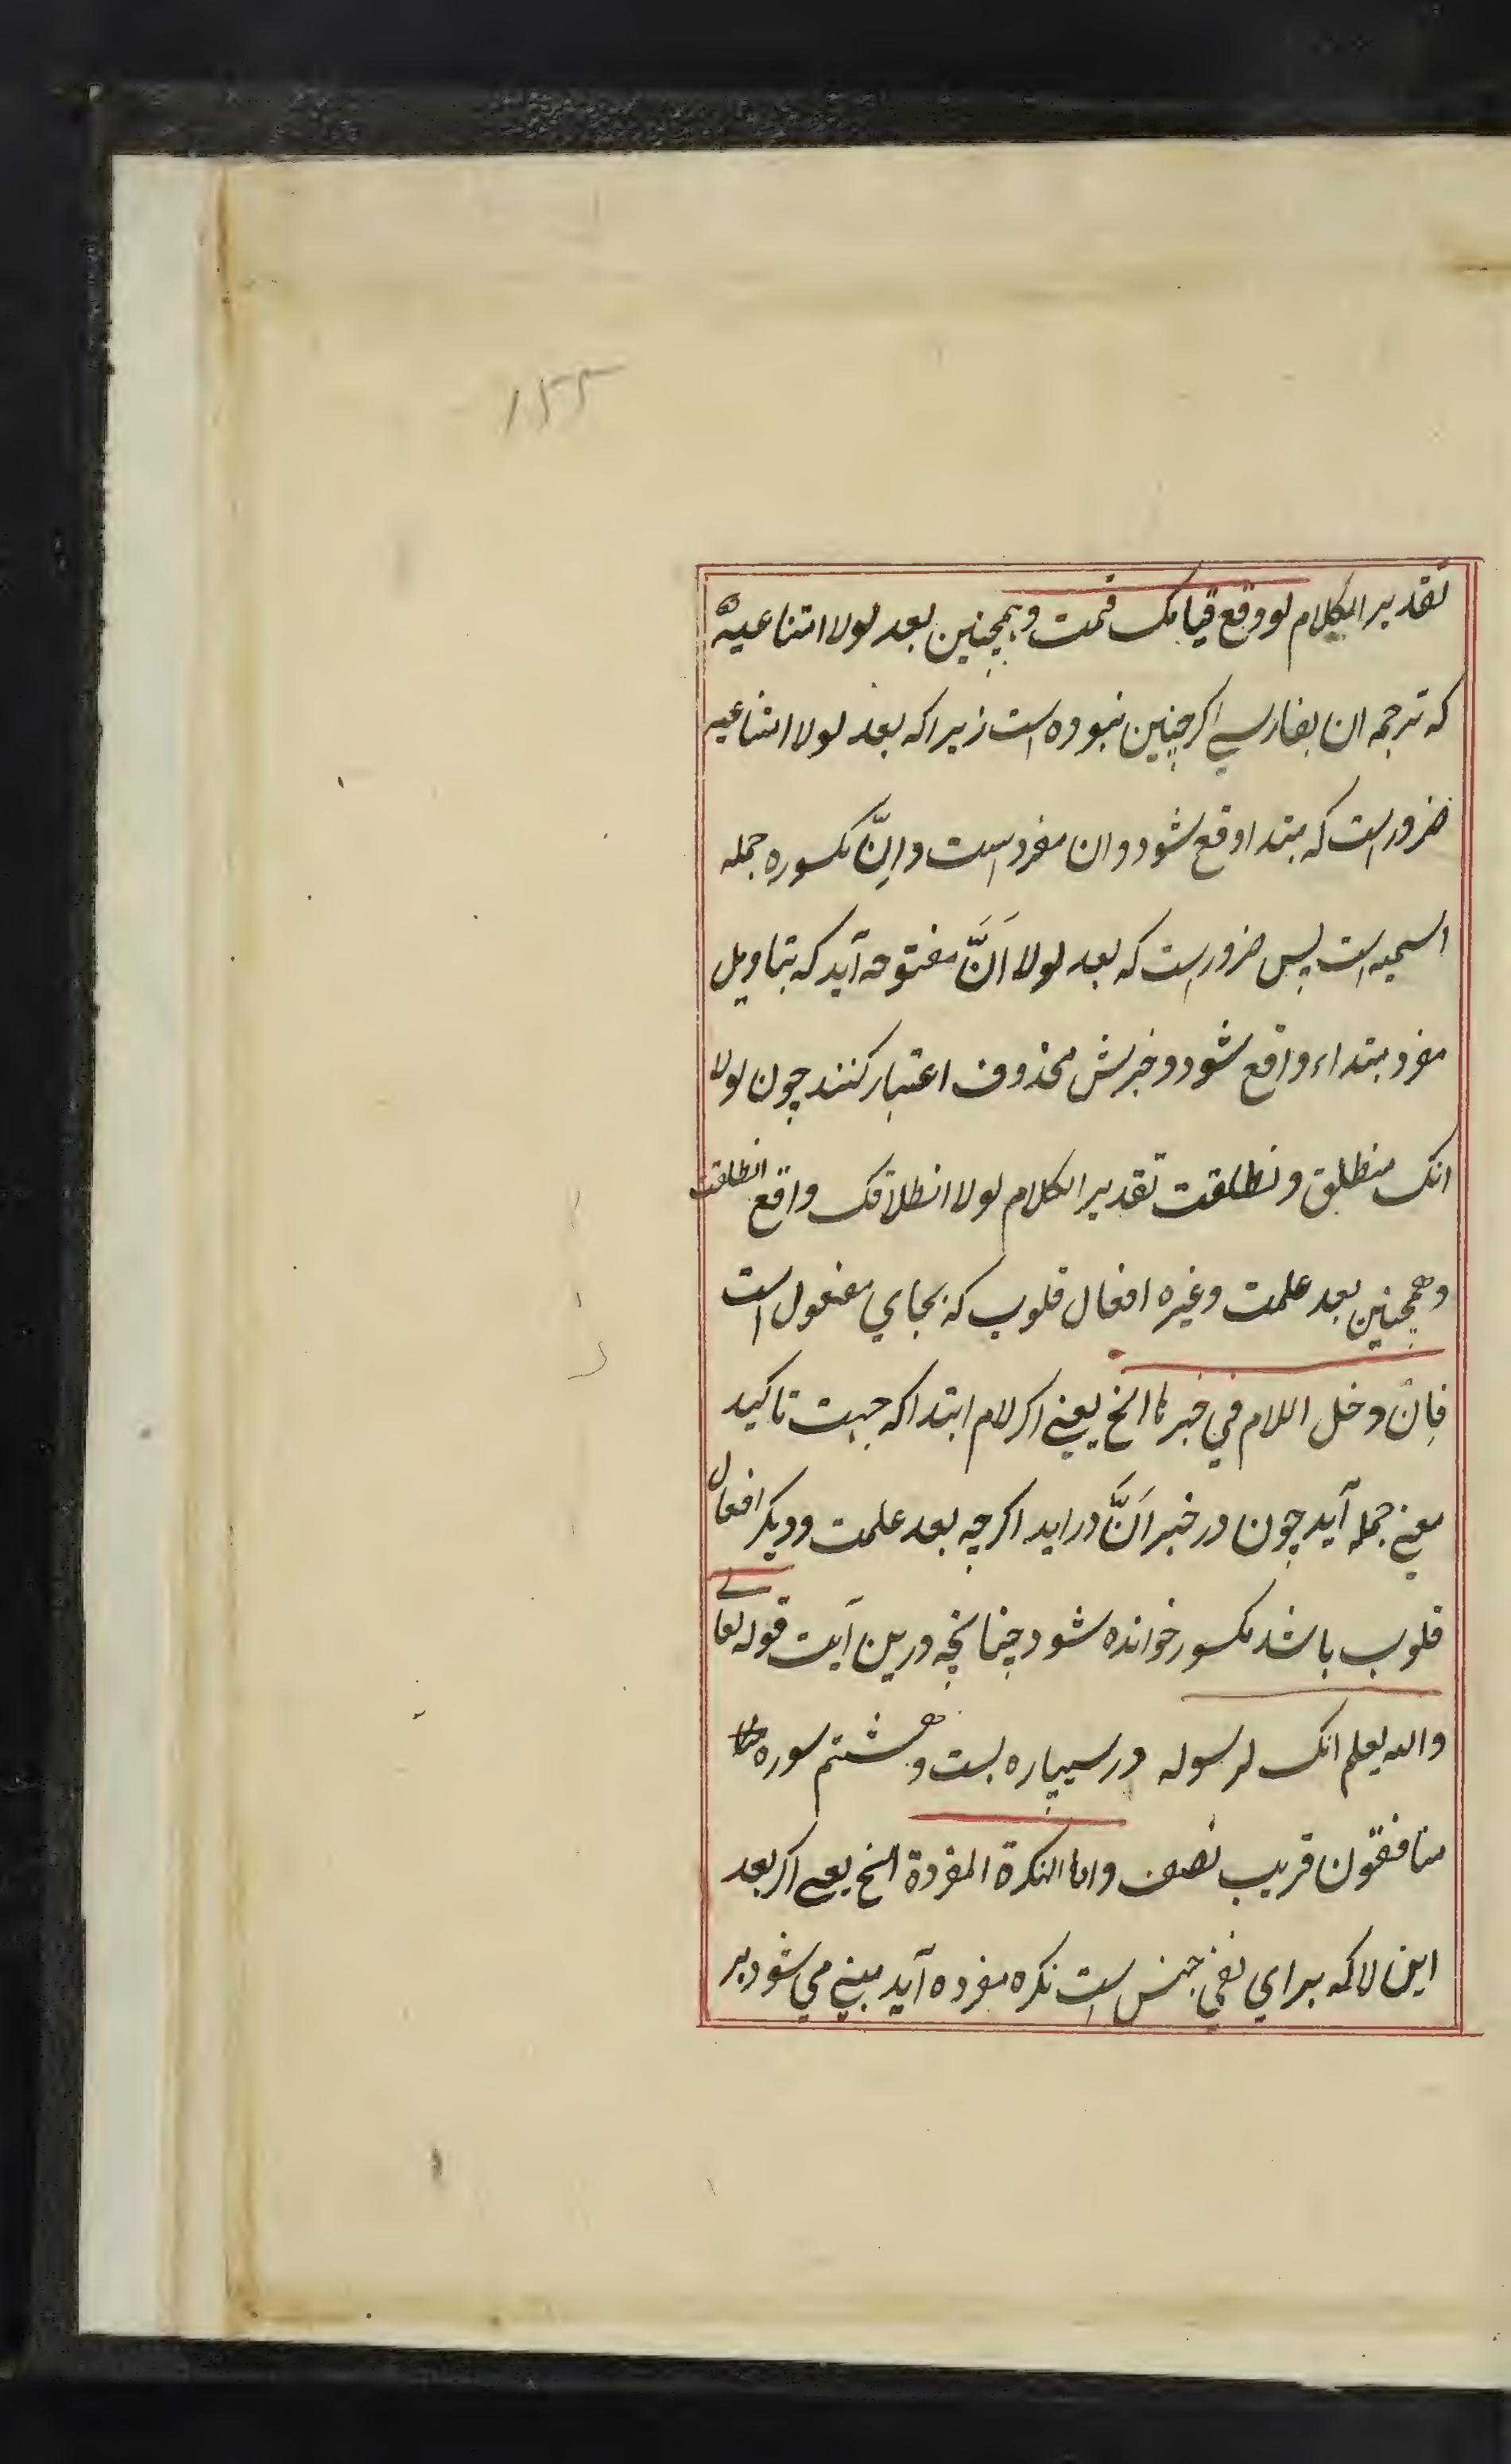 ۱۵۵
تقدیر الکلام لو وقع قیامک قمت و همچنین بعد لولا امتناعیه
که ترجمه ان بفارسی اکر چنین نبوده است زیراکه بعد لولا امتناعیه
ضرور است که مبتدا وقع شود و ان مفرد است و اِنَّ مکسوره جمله
اسمیه است پس ضرور است که بعد لولا اَنَّ مفتوحه آید که بتاویل
مفرد مبتداء واقع شود و خبرش محذوف اعتبار کنند چون لولا
انک منطلق و نطلقت تقدیر الکلام لولا انطلاقک واقع انطلقت
و همچنین بعد علمت و غیره افعال قلوب که بجای مفعول است
فاِن دخل اللام في خبرنا الخ یعنے اکر لام ابتدا که جهت تاکید
معنے جمله آید چون در خبر اَنَّ دراید اکرچه بعد علمت و دیکر افعال
قلوب باشد مکسور خوانده شود چنانچه درین آیت قوله تعالے
والله یعلم انک لرسوله در سیپاره بست و هشتم سوره
منافقون قریب نصف واما النکرة المفردة الخ یعنے اکر بعد
این لا که برای نفی جنس است نکره مفرده آید مبنی می شود بر